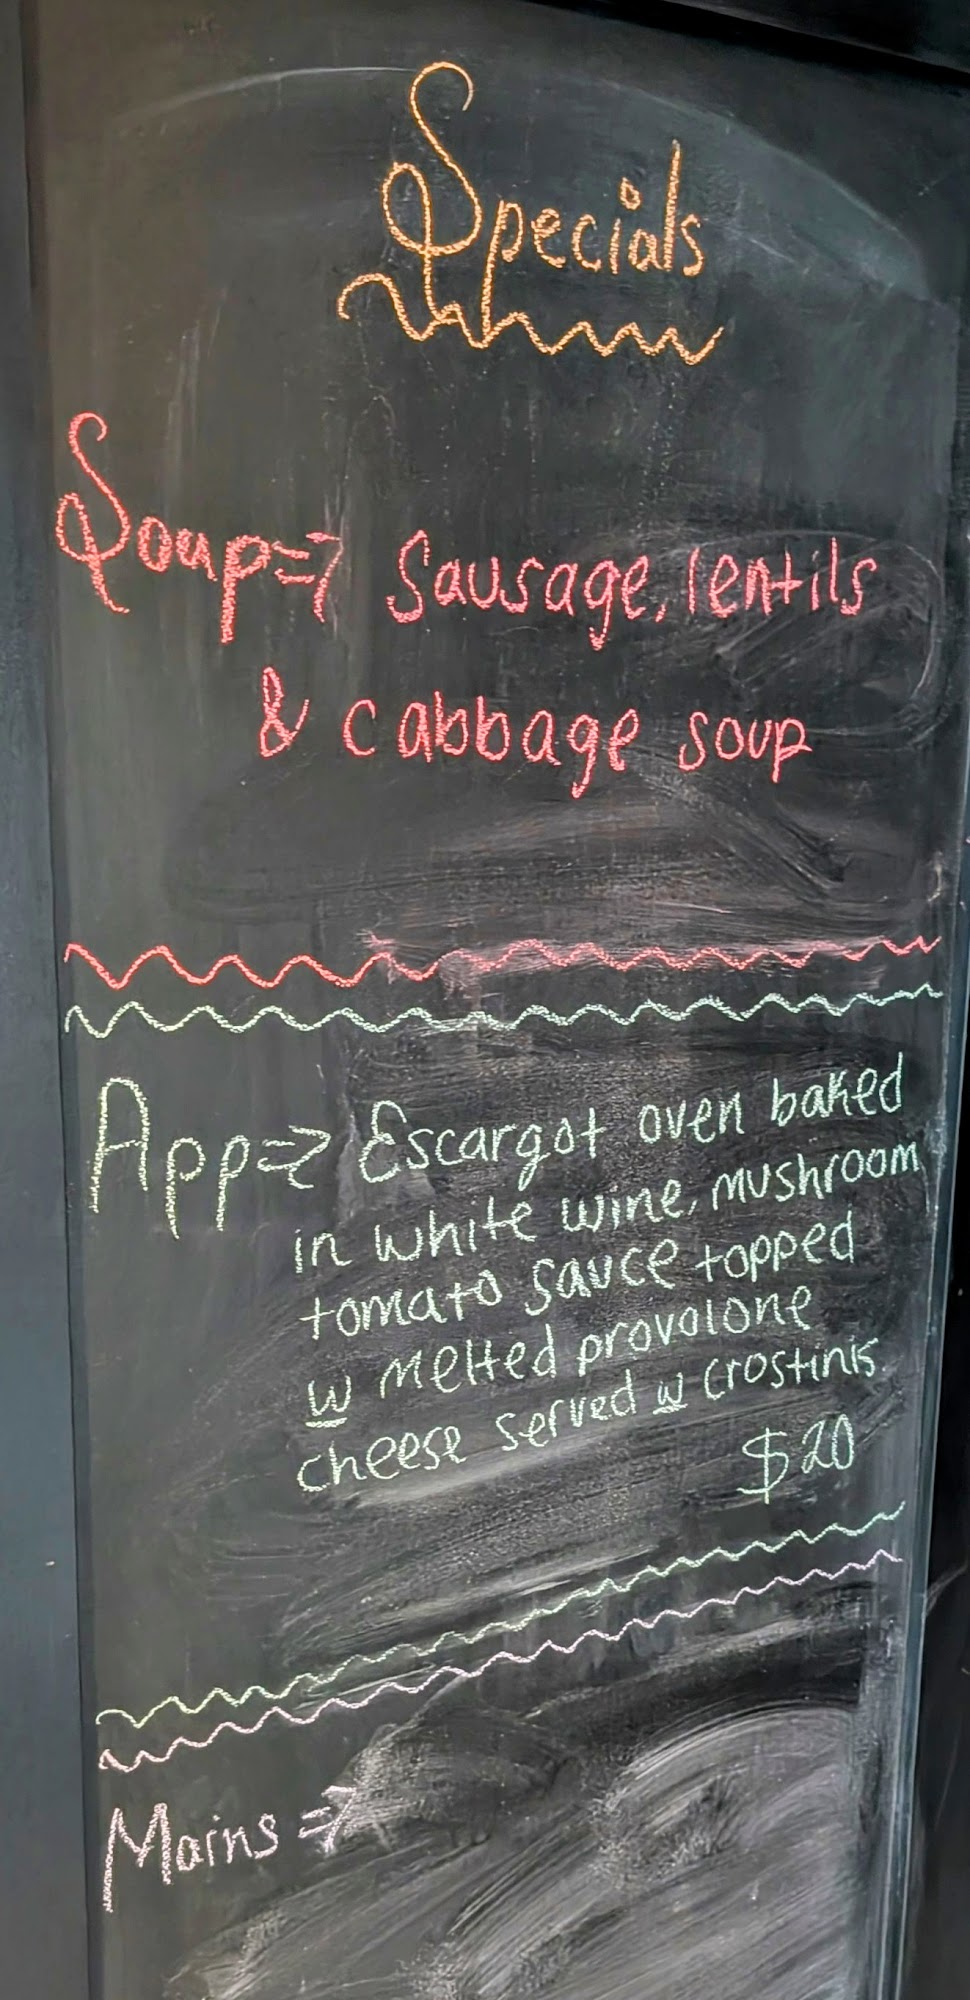 Specials
Soup => Sausage, lentils
& cabbage soup
App => Escargot oven baked
in white wine, mushroom
tomato sauce topped
w melted provolone
cheese served w crostinis
$20
Mains =>